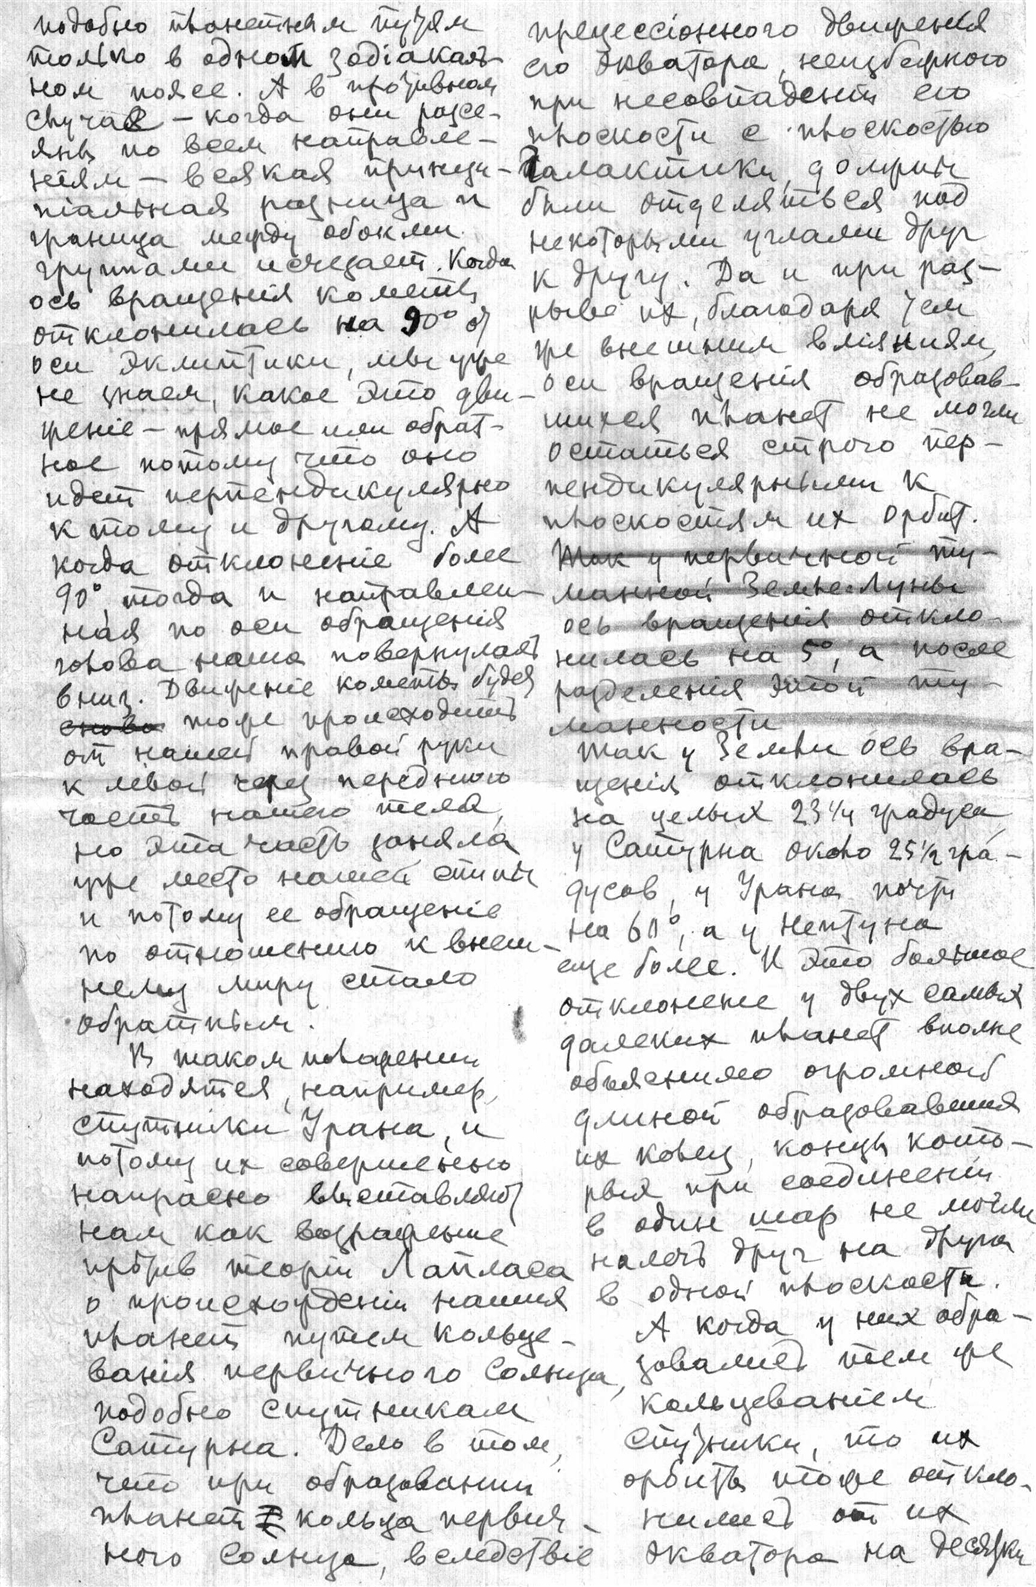 подобно планетным путям
только в одном зодіакаль-
ном поясе. А в противном
случае – когда они рассе-
яны по всем направле-
ніям – всякая принци-
піальная разница и
граница между обоими
группами исчезает. Когда
ось вращенія кометы
отклонилась на 90° от
оси эклиптики, мы уже
не знаем, какое это дви-
женіе – прямое или обрат-
ное потому что оно
идет перпендикулярно
к тому и другому. А
когда отклоненіе более
90°, тогда и направлен-
ная по оси обращенія
голова наша повернулась
вниз. Движеніе кометы будет
снова тоже происходить
от нашей правой руки
к левой через переднюю
часть нашего тела,
но эта часть заняла
уже место нашей спины
и потому ее обращеніе
по отношению к внеш-
нему миру стало
обратным.
В таком положении
находятся, например,
спутники Урана, и
потому их совершенно
напрасно выставляют
нам как возражение
против теоріи Лапласа
о происхожденіи наших
планет путем кольце-
ванія первичного Солнца,
подобно спутникам
Сатурна. Дело в том,
что при образовании
планет кольца первич-
ного Солнца, вследствіе
прецессіонного движенія
его экватора, неизбежного
при несовпаденіи его
плоскости с плоскостью
Галактики, должны
были отделяться под
некоторыми углами друг
к другу. Да и при раз-
рыве их, благодаря тем
же внешним вліяниям,
оси вращенія образовав-
шихся планет не могли
остаться строго пер-
пендикулярными к
плоскостям их орбит.
Так у первичной ту-
манной Земле-Луны
ось вращенія откло-
нилась на 5°, а после
разделенія этой ту-
манности
Так у Земли ось вра-
щенія отклонилась
на целых 23 1/4 градуса,
у Сатурна около 25 1/2 гра-
дусов, у Урана почти
на 60°, а у Нептуна
еще более. И это большое
отклонение у двух самых
далеких планет вполне
объяснимо огромной
длиной образовавших
их колец, концы кото-
рых при соединеніи
в один шар не могли
налечь друг на друга
в одной плоскости.
А когда у них обра-
зовались тем же
кольцеваніем
спутники, то их
орбиты тоже откло-
нились от их
экватора на десятки